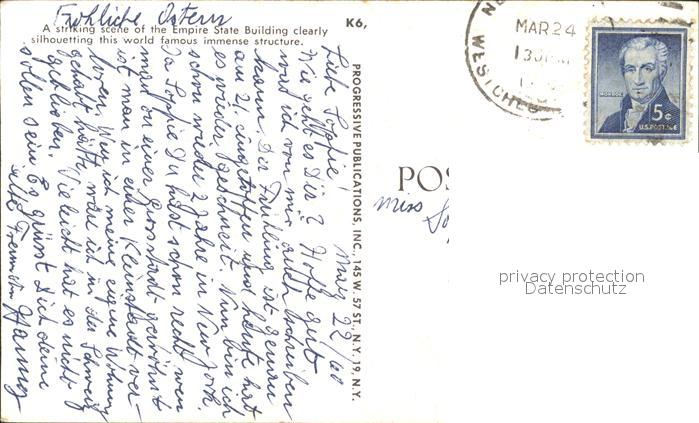 Fröhliche Ostern
A striking scene of the Empire State Building clearly
silhouetting this world famous immense structure.
K6,
PROGRESSIVE PUBLICATIONS, INC., 145 W. 57 ST., N.Y. 19, N.Y.
May 22/60
Liebe Soppie!
Wie geht es Dir? Hoffe gut
was ich von mir auch schreiben
kann. Der Frühling ist genau
am 21. eingetroffen und heute hat
es wieder geschneit. Nun bin ich
schon wieder 2 Jahre in New York.
Ja Soppie Du hast schon recht wen
man an einer Grosstadt gewöhnt
ist man in einer Kleinstadt ver-
loren. Wen ich meine eigene Wohnung
gehabt hätte wäre ich in der Schweiz
geblieben. Vielleicht hat es nicht
sollen sein. Es grüsst Dich deine
alte Freundin
MAR 24
130 PM
WESTCHES
MONROE
5¢
U.S. POSTAGE
POS
Miss So
privacy protection
Datenschutz